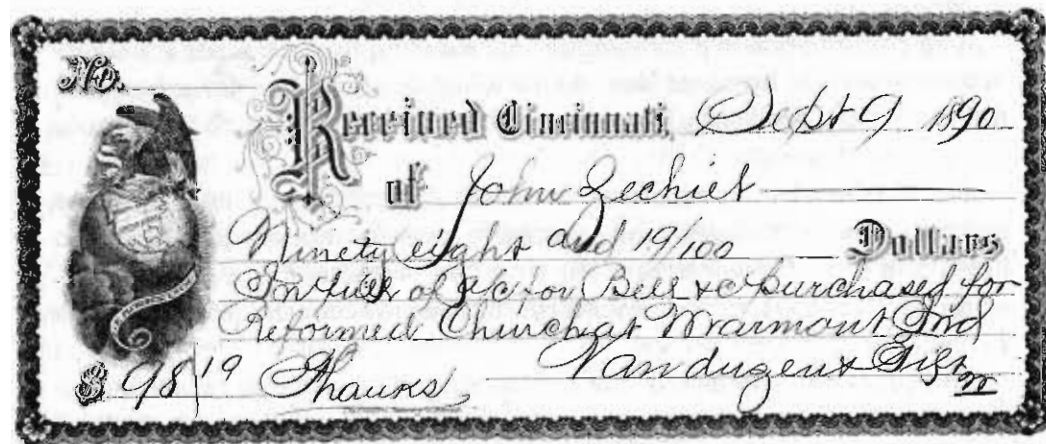 No.
Received Cincinnati, Sept 9 1890
of John Zechiel
Ninety eight and 19/100 Dollars
In full of a/c for Bell &c purchased for
Reformed Church at Marmont Ind
$ 98 19 Thanks Vanduzen & Tift